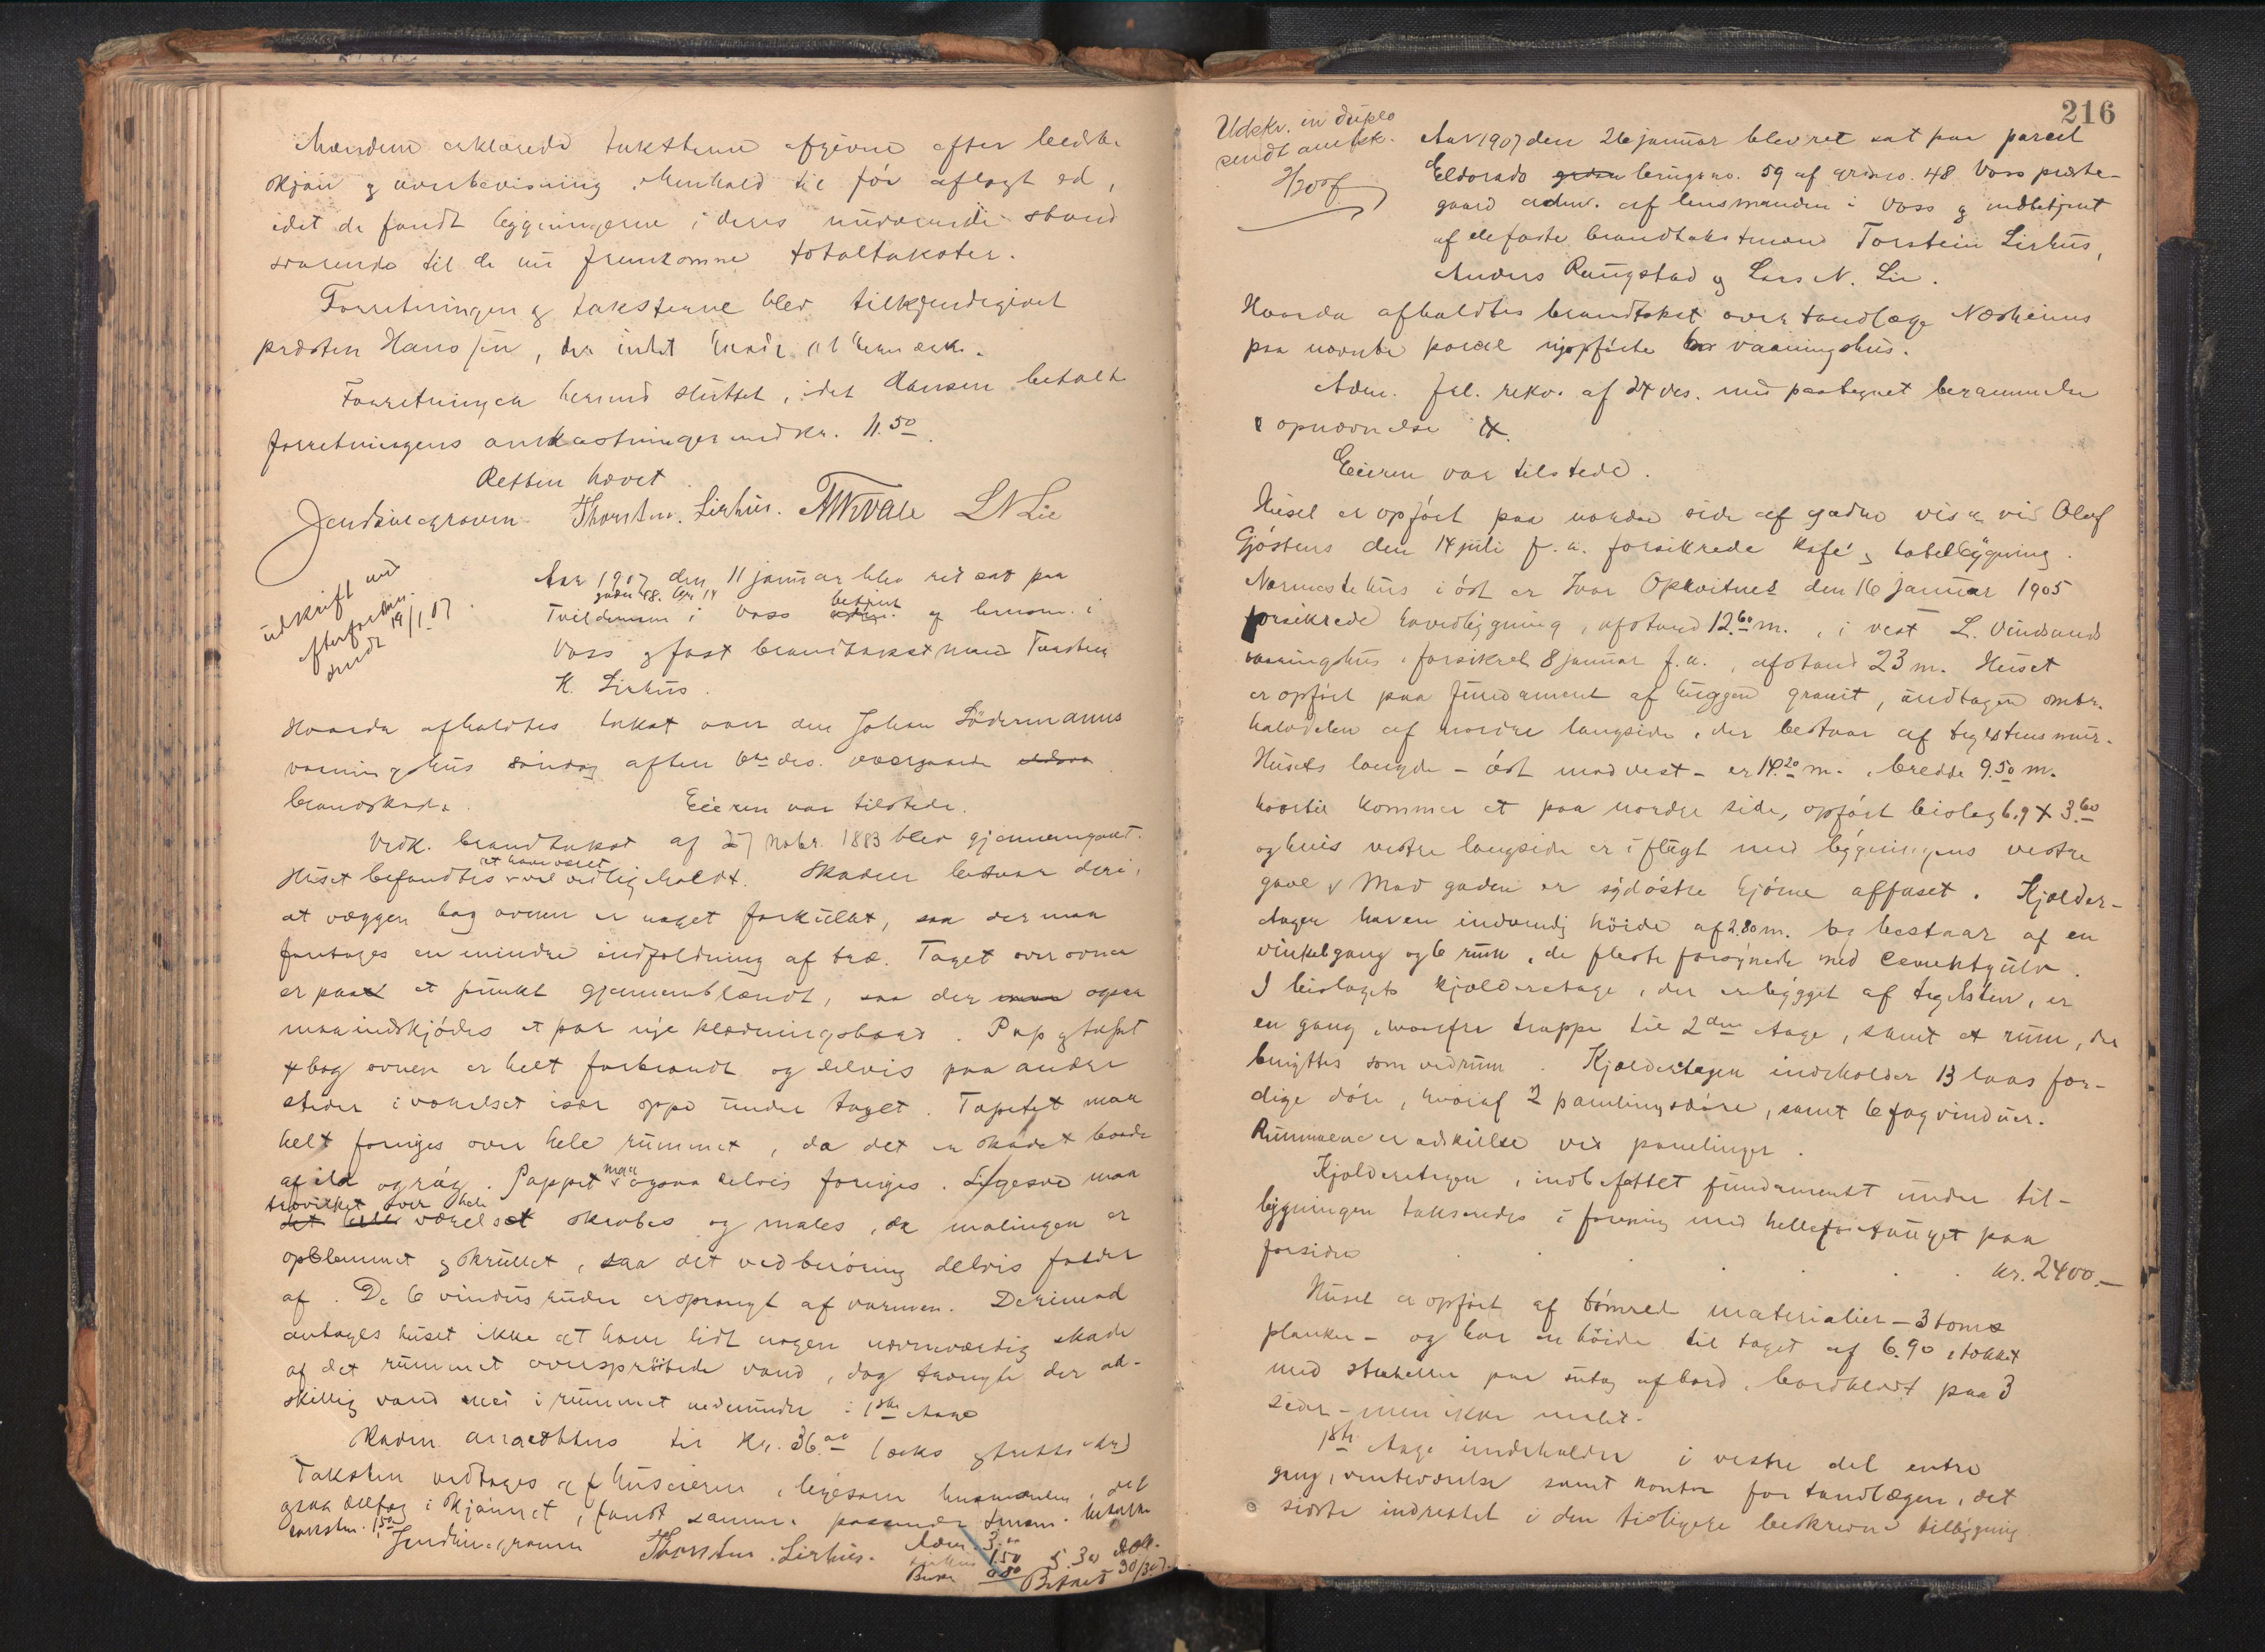 Mændene erklærede taksterne afgivne efter bedste
skjøn og overbevisning i henhold til før aflagt ed,
idet de fandt bygningerne i deres nuværende stand
svarende til de nu fremkomne totaltakster.
Forretningen og taksterne blev tilkjendegivet
presten Hansen, der intet havde at bemærke.
Forretningen hermed sluttet, idet Hansen betalte
forretningens omkostninger med kr. 11.50.
Retten hævet.
Thorstein Lirhus. LN Lie
udskrift med
efterforskn.
sendt 14/1.07.
Aar 1907 den 11 januar blev ret sat paa
gaden 48. br. 14
Tvildemoen i Voss betjent af lensm. i
Voss og fast brandtakstmand Torstein
K. Lirhus.
Hvorda afholdtes takst over den Johan Södermanns
vaaningshus søndag aften 6te ds. overgaaede
brandskade. Eieren var tilstede.
Vedk. brandtakst af 27 novbr. 1883 blev gjennemgaaet.
at have været
Huset befandtes vel vedligeholdt. Skaden bestaar deri,
at væggen bag ovnen er noget forkullet, saa der maa
foretages en mindre indfoldning af træ. Taget over ovnen
er paa et punkt gjennembrændt, saa der ogsaa
maa indskjødes et par nye klædningsbord. Pap og tapet
bag ovnen er helt forbrændt og delvis paa andre
steder i værelset især oppe under taget. Tapetet maa
helt fornyes over hele rummet, da det er skadet baade
af ild og røg. Pappet maa ogsaa delvis fornyes. Ligesaa maa
trævirket over hele
værelset skrabes og males, da malingen er
opblemmet og skrullet, saa det ved berøring delvis falder
af. De 6 vindusruder er sprængt af varmen. Derimod
antages huset ikke at have lidt nogen nævneværdig skade
af det rummet oversprøitede vand, dog trængte der ad-
skillig vand ned i rummet nedenunder i 1ste etage
Skaden ansættes til Kr. 36.00 (seks og tretti kr)
Taksten vedtages af huseieren, ligesom lensmanden, der
ogsaa deltog i skjønnet, fandt samme passende.
Thorstein Lirhus.
Adm. 3.00
Lirhus 1.50
0.80
5.30
Betalt 30/3.07.
216
Udskr. in duplo
sendt amtsk.
Aar 1907 den 26 januar blev ret sat paa parcel
Eldorado brugsno. 59 af grdsno. 48 Voss preste-
gaard adm. af lensmanden i Voss og medbetjent
af de faste brandtakstmænd Torstein Lirhus,
Anders Rongstad og Lars N. Lie.
Hvorda afholdtes brandtakst over tandlæge Næsheims
paa nævnte parcel nyopførte vaaningshus.
Adm. frl. rekv. af 24 ds. med paategnet berammelse
& opnævnelse
Eieren var tilstede.
Huset er opført paa nordre side af gaden vis a vis Olaf
Gjøsteins den 14 juli f.a. forsikrede kafé og hotelbygning.
Nærmeste hus i øst er Ivar Opkvitnes den 16 januar 1905
forsikrede hovedbygning, afstand 12.60 m., i vest L. Vindsands
vaaningshus forsikret 8 januar f.a., afstand 23 m. Huset
er opført paa fundament af huggen granit, undtagen omtr.
halvdelen af nordre langside, der bestaar af teglstensmur.
Husets længde - øst mod vest - er 14.20 m., bredde 9.50 m.
hvortil kommer et paa nordre side, opført bislag 6.9 x 3.60
og hvis vestre langside er i flugt med bygningens vestre
gavl. Mod gaden er sydøstre hjørne affaset. Kjelder-
etagen har en indvendig høide af 2.80 m. og bestaar af en
vinkelgang og 6 rum, de fleste forsynede med cementgulv.
I bislagets kjelderetage, der er bygget af teglsten, er
en gang, hvorfra trappe til 2den etage, samt et rum, der
benyttes som vedrum. Kjelderetagen indeholder 13 laasfær-
dige døre, hvoraf 2 pamelingsdøre, samt 6 fag vinduer.
Rummene er adskilte ved panelinger.
Kjelderetagen, indbefattet fundamentet under til-
bygningen takseredes i forening med hellefortauget paa
forsiden . . . . kr. 2400.-
Huset er opført af tømret materialier - 3 toms
planker - og har en høide til taget af 6.90, tækket
med stenheller paa sutag af bord, bordklædt paa 3
sider - men ikke malet.
1ste etage indeholder i vestre del entre
gang, venteværelse samt kontor for tandlægen, det
sidste indrettet i den tidligere beskrevne tilbygning